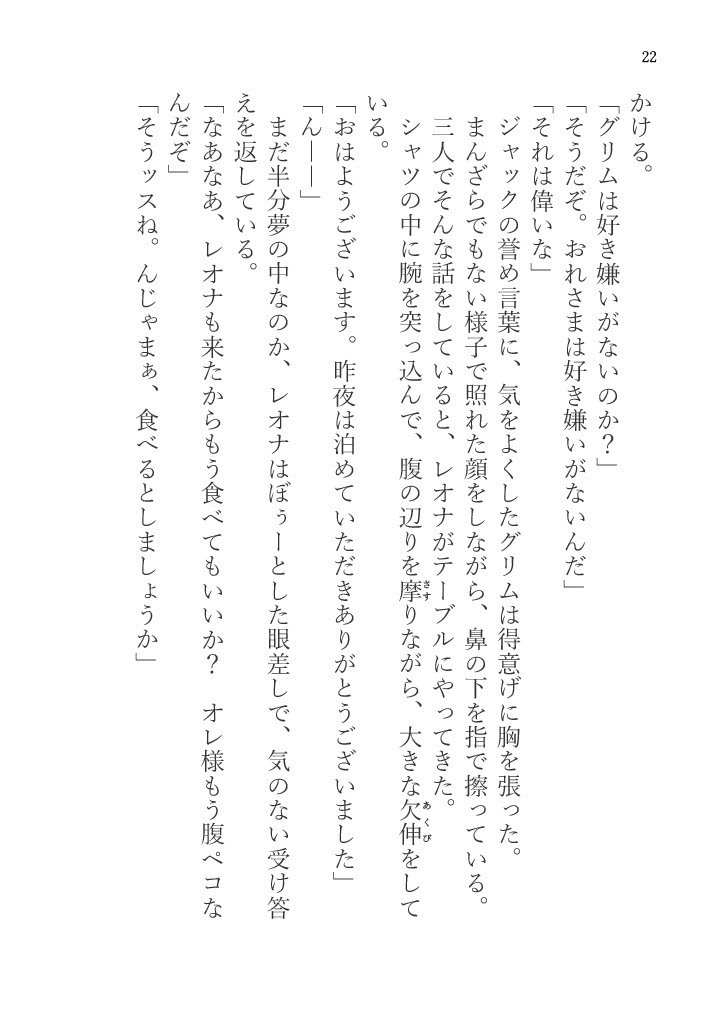 22
かける。
「グリムは好き嫌いがないのか？」
「そうだぞ。おれさまは好き嫌いがないんだ」
「それは偉いな」
ジャックの誉め言葉に、気をよくしたグリムは得意げに胸を張った。
まんざらでもない様子で照れた顔をしながら、鼻の下を指で擦っている。
三人でそんな話をしていると、レオナがテーブルにやってきた。
シャツの中に腕を突っ込んで、腹の辺りを摩りながら、大きな欠伸をして
いる。
「おはようございます。昨夜は泊めていただきありがとうございました」
「ん——」
まだ半分夢の中なのか、レオナはぼぅーとした眼差しで、気のない受け答
えを返している。
「なあなあ、レオナも来たからもう食べてもいいか？　オレ様もう腹ペコな
んだぞ」
「そうッスね。んじゃまぁ、食べるとしましょうか」